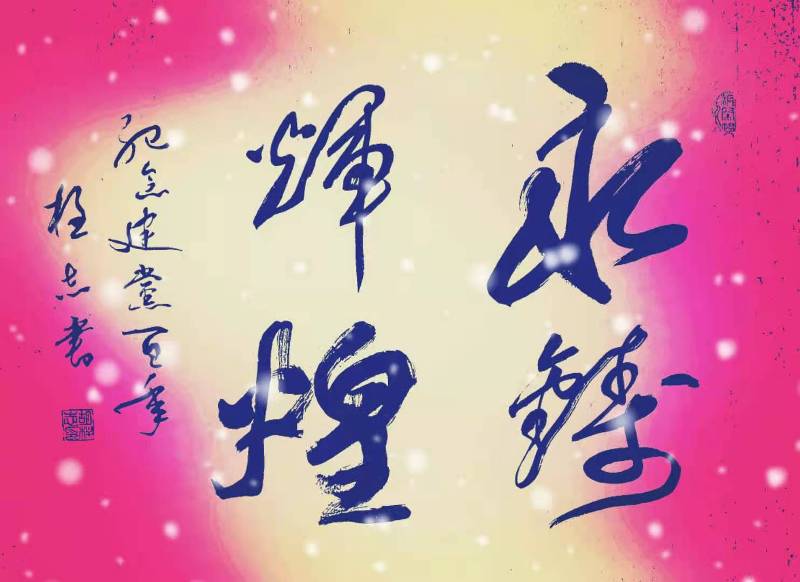 永铸
辉煌
纪念建党百年
桂志书